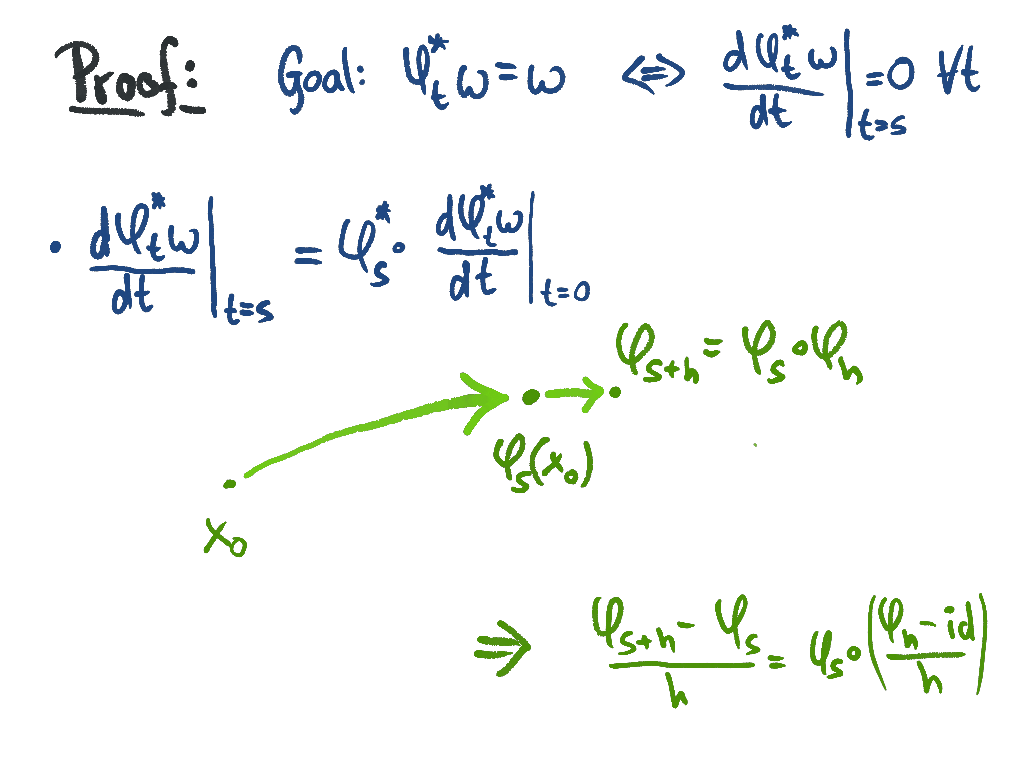 Proof: Goal: φ_t^* ω = ω ⇔ dφ_t^* ω / dt |_{t=s} = 0 ∀t
• dφ_t^* ω / dt |_{t=s} = φ_s^* ∘ dφ_t^* ω / dt |_{t=0}
φ_{s+h} = φ_s ∘ φ_h
φ_s(x_0)
x_0
⇒ (φ_{s+h} - φ_s) / h = φ_s ∘ ((φ_h - id) / h)